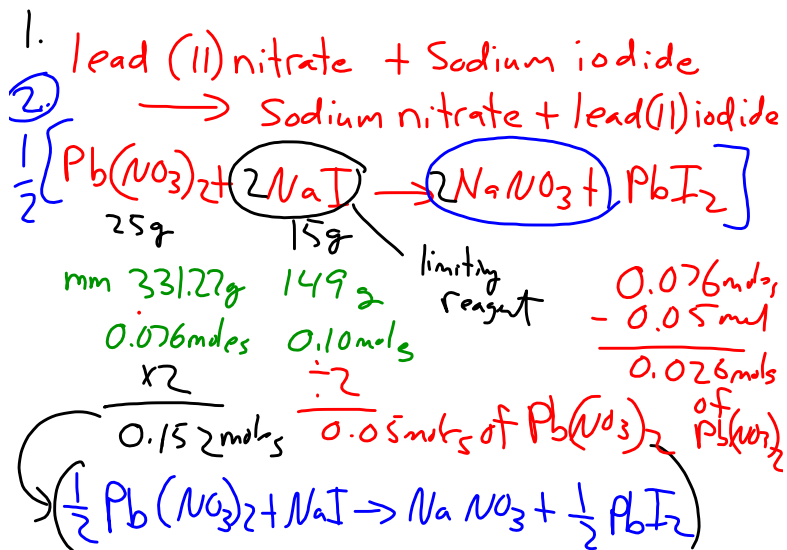 1.
lead (11) nitrate + Sodium iodide
2.
→ Sodium nitrate + lead(11) iodide
1/2 [Pb(NO3)2 + 2NaI → 2NaNO3 + PbI2]
25g 15g
limiting
reagent
mm 331.22g 149g
0.076moles 0.10mols
x2 ÷2
0.152moles 0.05mols of Pb(NO3)2
0.076mols
- 0.05mol
0.026mols
of
Pb(NO3)2
(1/2 Pb(NO3)2 + NaI → NaNO3 + 1/2 PbI2)